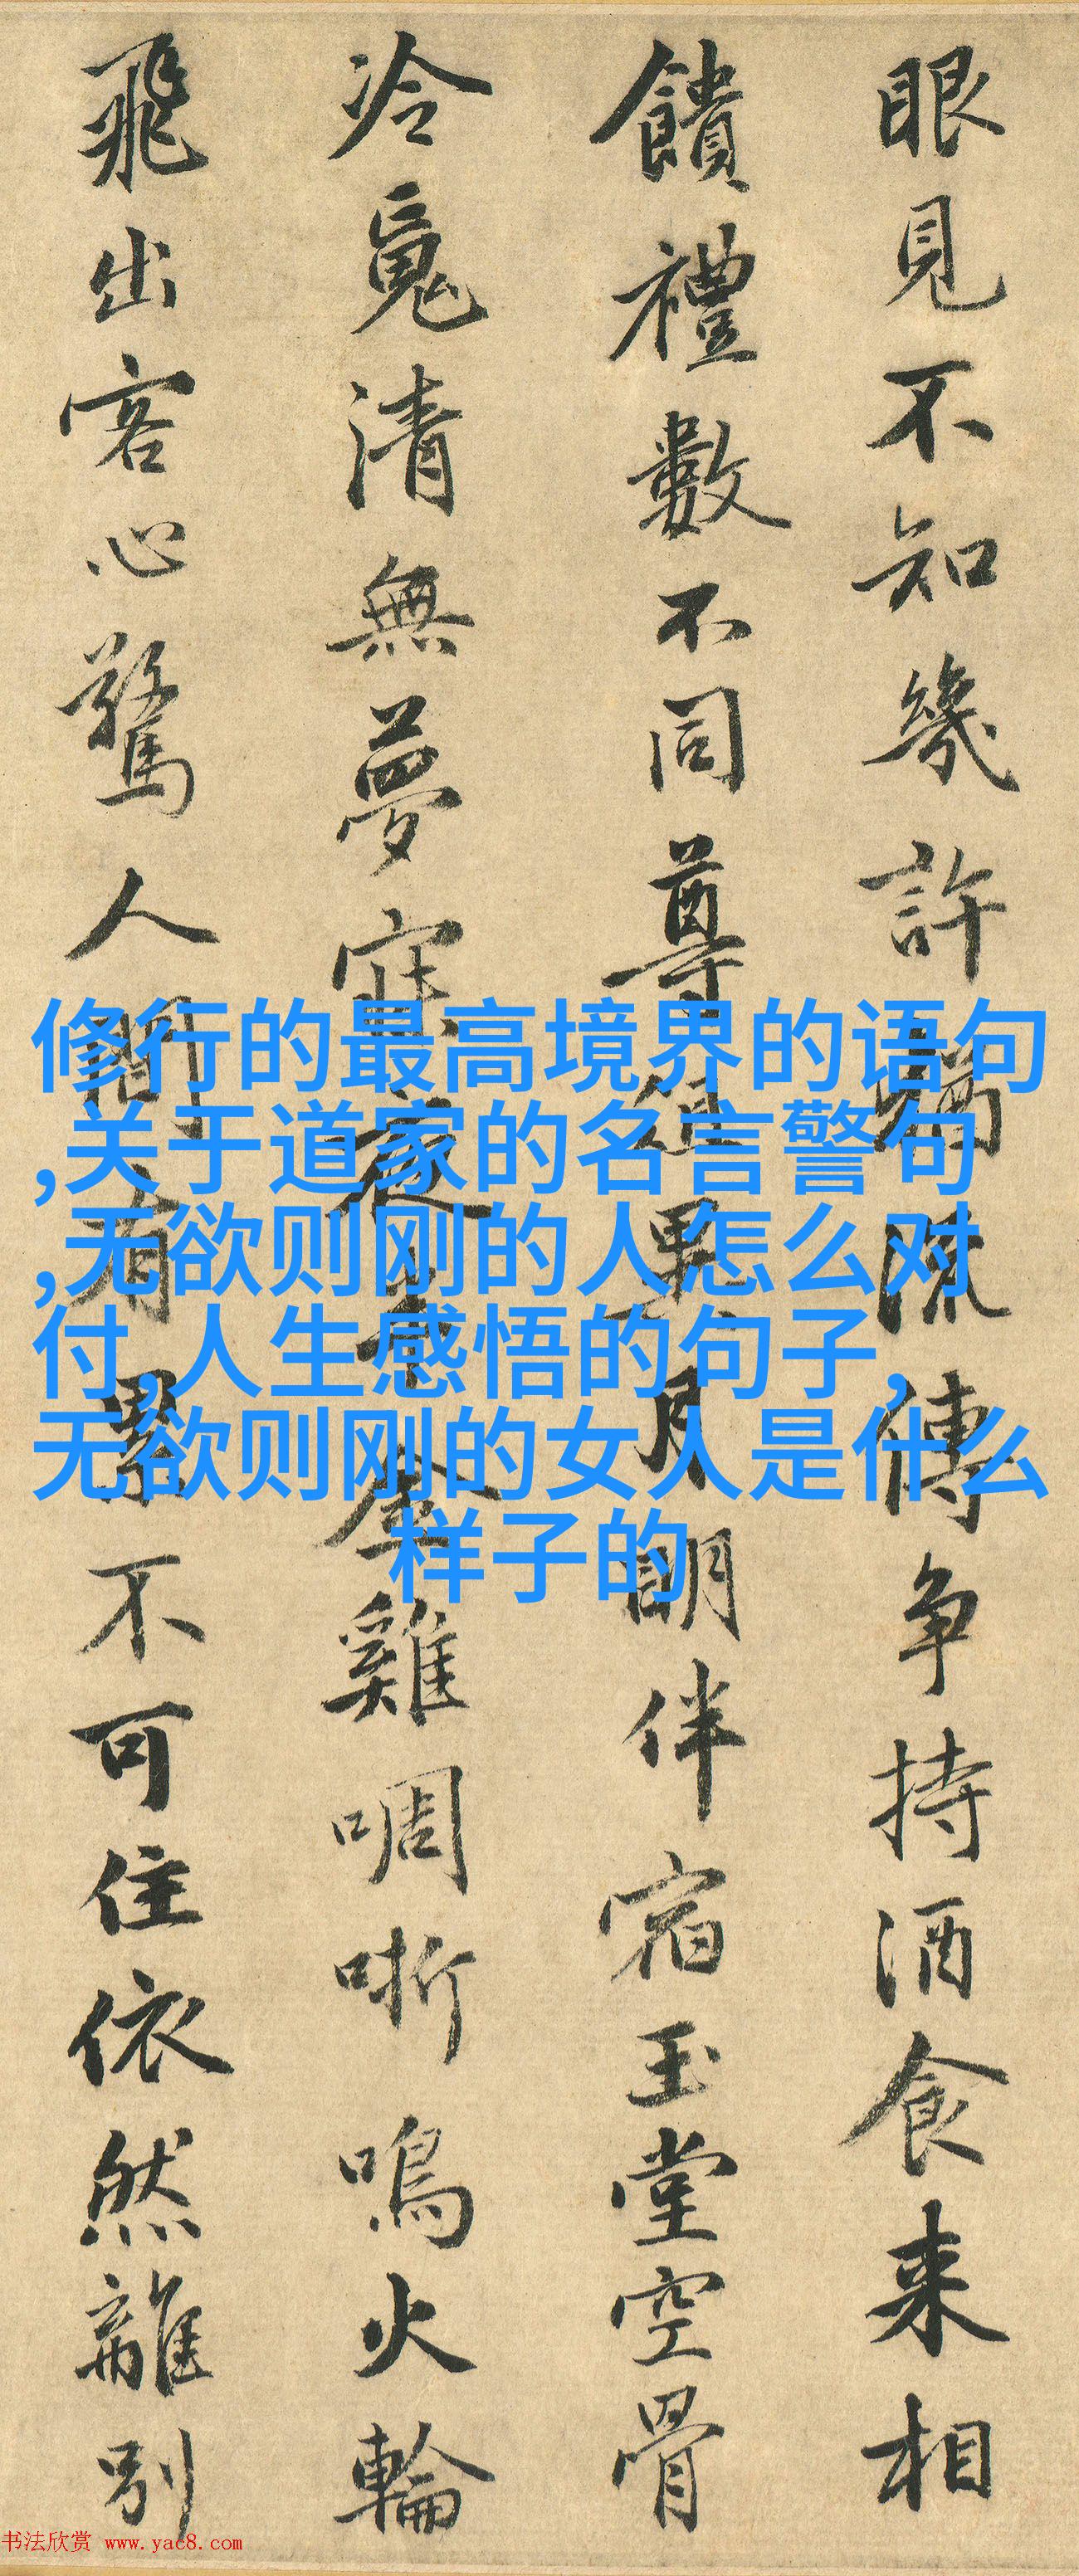 眼見不知幾許猶流傳争持酒食来相
饋禮數不同尊俎異月明伴宿玉堂空骨
冷魂清無夢寐夜半金雞啁哳鳴火輪
飛出客心驚人間有累不可住依然離別
修行的最高境界的语句
,关于道家的名言警句
,无欲则刚的人怎么对
付,人生感悟的句子,
无欲则刚的女人是什么
样子的
书法欣赏 www.yac8.com